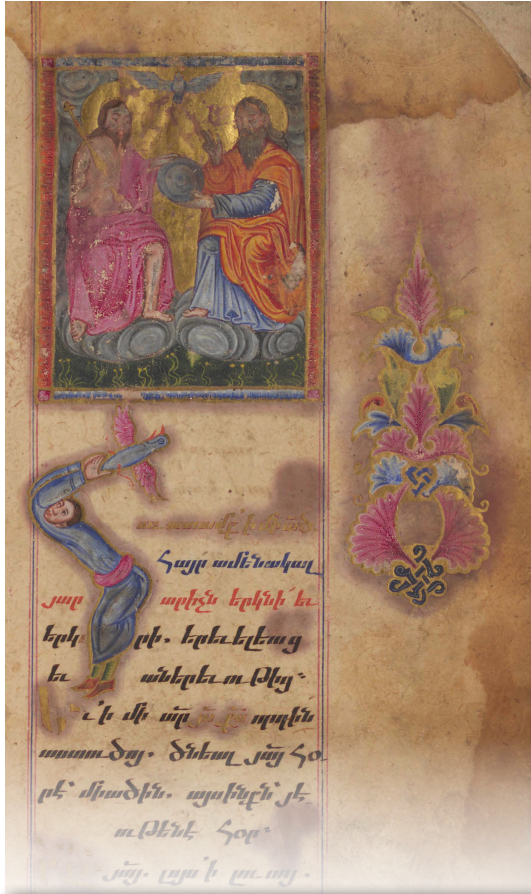 Հայր ամենակալ
յար արիչն երկնի եւ
երկ րի. երեւելեաց
եւ աներեւութից։
Եւ ՛ի մի տր որդին
աստուծոյ. ծնեալ յայ հօ
րէ՛ միածին. այսինքն՛ յէ
ութենէ հօր։
յայ. լոյս ՛ի լուսոյ.